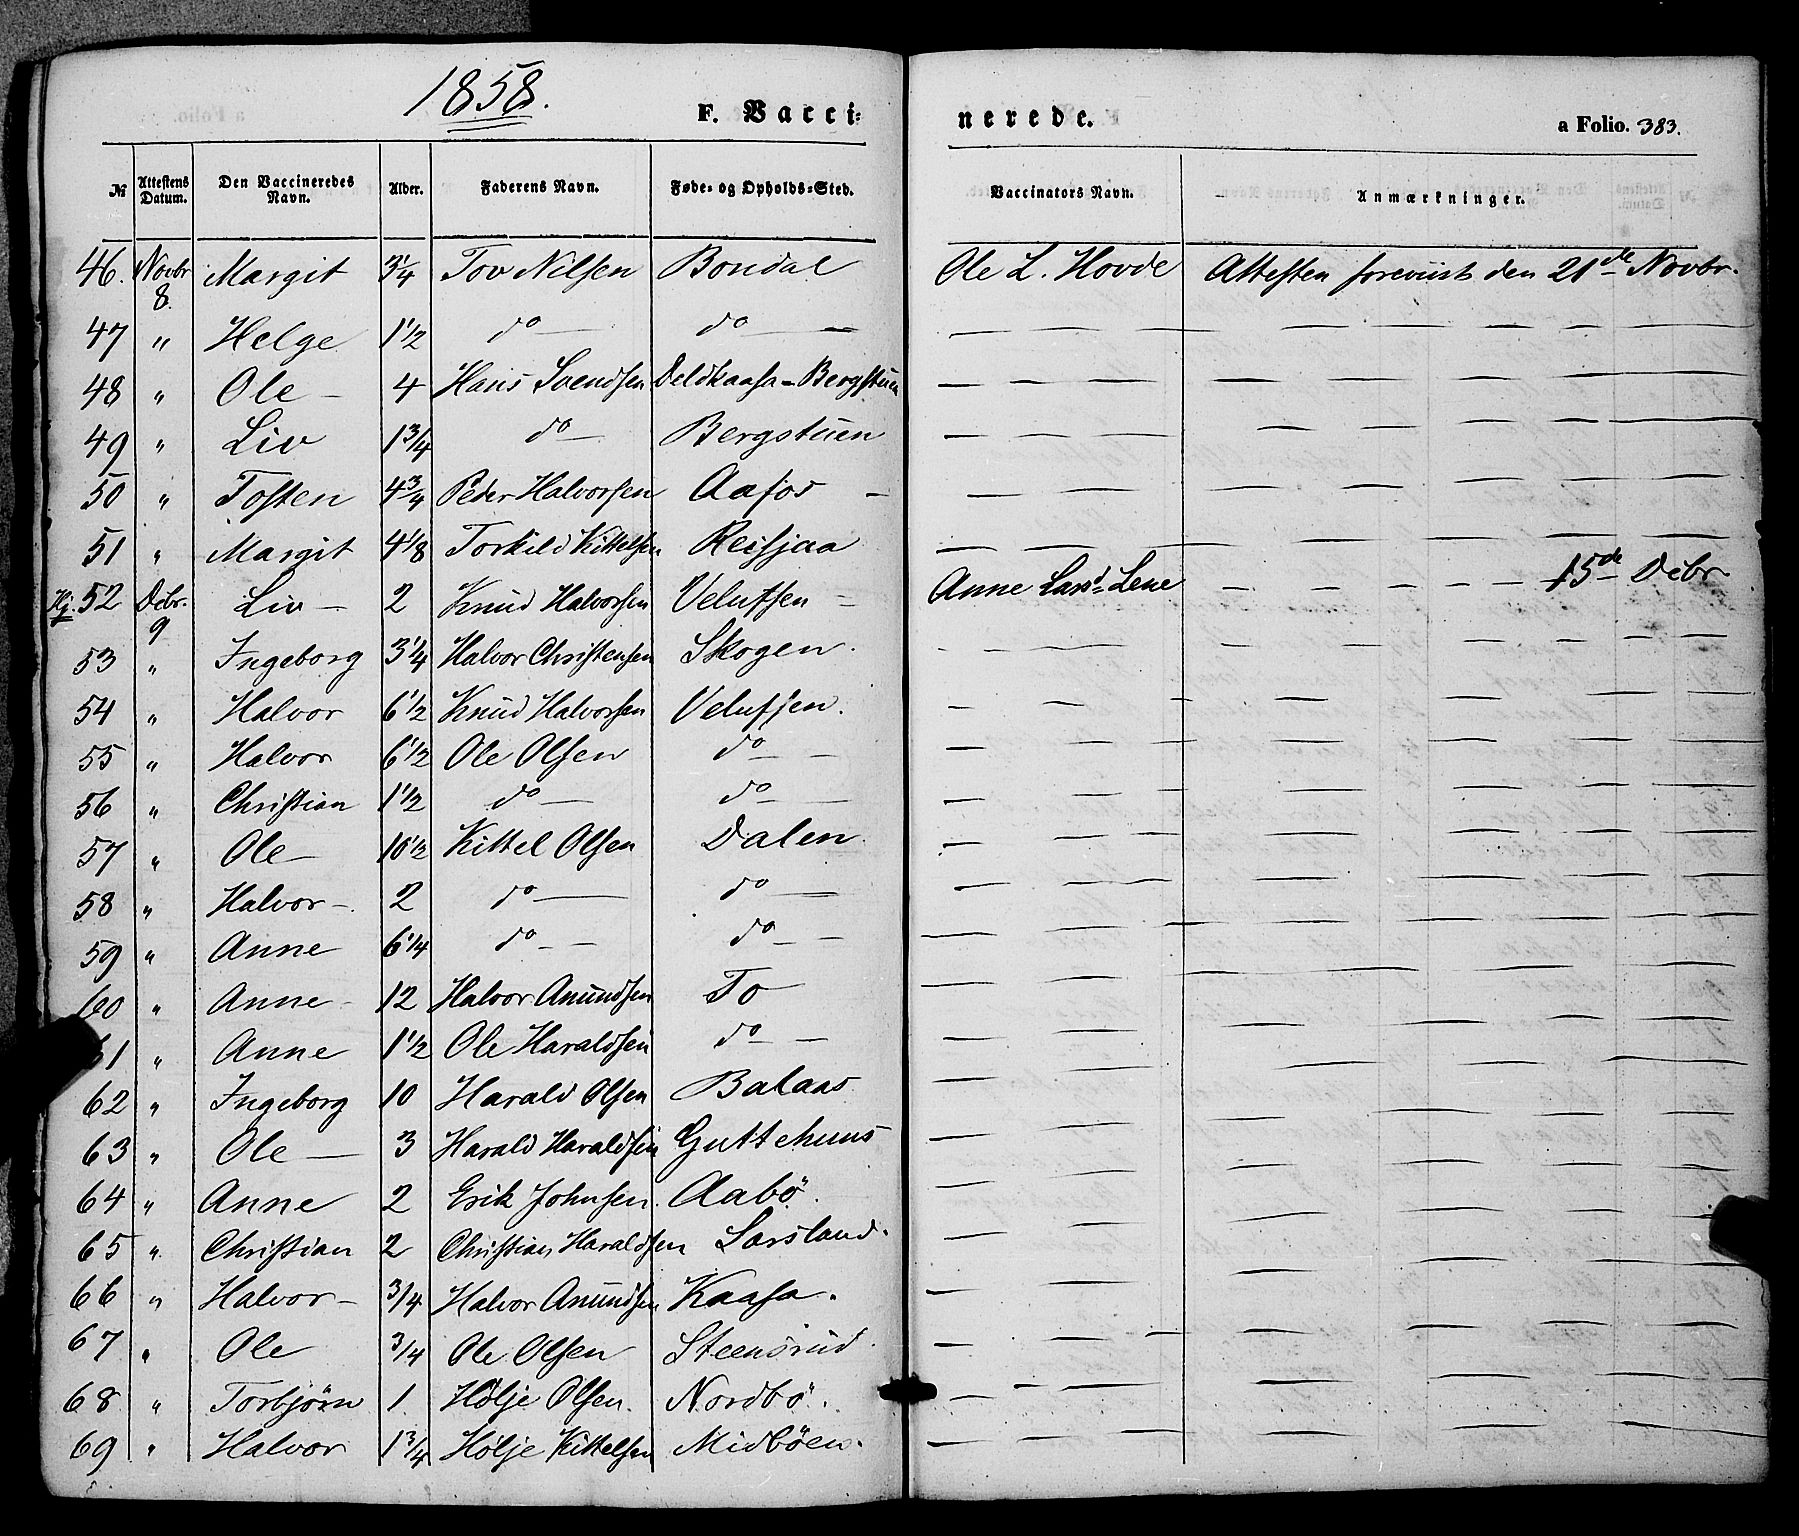 1858.
F. Vacci= nerede. a Folio. 383.
№ Attestens Datum. Den Vaccineredes Navn. Alder. Faderens Navn. Føde= og Opholds=Sted. Vaccinators Navn. Anmærkninger.
46. Novbr 8. Margit 3 1/4 Tov Nilsen Bondal Ole L. Hovde Attesten foreviist den 21de Novbr.
47 " Helge 1 1/2 do — do —
48 " Ole — 4 Hans Svendsen Deldkaasa - Bergstuen
49 " Liv 1 3/4 do — Bergstuen
50 " Tosten 4 3/4 Peder Halvorsen Aafos —
51 " Margit 4 1/8 Torkild Kittelsen Reisjaa
Hj. 52 Debr. 9 Liv — 2 Knud Halvorsen Velutsen — Anne Larsd. Lene — — — 15de Debr
53 " Ingeborg 3 1/4 Halvor Christensen Skogen.
54 " Halvor 6 1/2 Knud Halvorsen Velutsen.
55 " Halvor 6 1/2 Ole Olsen do —
56 " Christian 1 1/2 do — do —
57 " Ole — 10 1/2 Kittel Olsen Dalen
58 " Halvor — 2 do — do —
59 " Anne 6 1/4 do — do —
60 " Anne 12 Halvor Anundsen To
61 " Anne 1 1/2 Ole Haraldsen do —
62 " Ingeborg 10 Harald Olsen Balaas
63 " Ole — 3 Harald Haraldsen Guttehuus
64 " Anne 2 Erik Johnsen Aabö.
65 " Christian 2 Christian Haraldsen Larsland.
66 " Halvor — 3/4 Halvor Anundsen Kaasa.
67 " Ole 3/4 Ole Olsen Steensrud
68 " Torbjörn 1 Hölje Olsen. Nordbö.
69 " Halvor 1 3/4 Hölje Kittelsen Midböen.